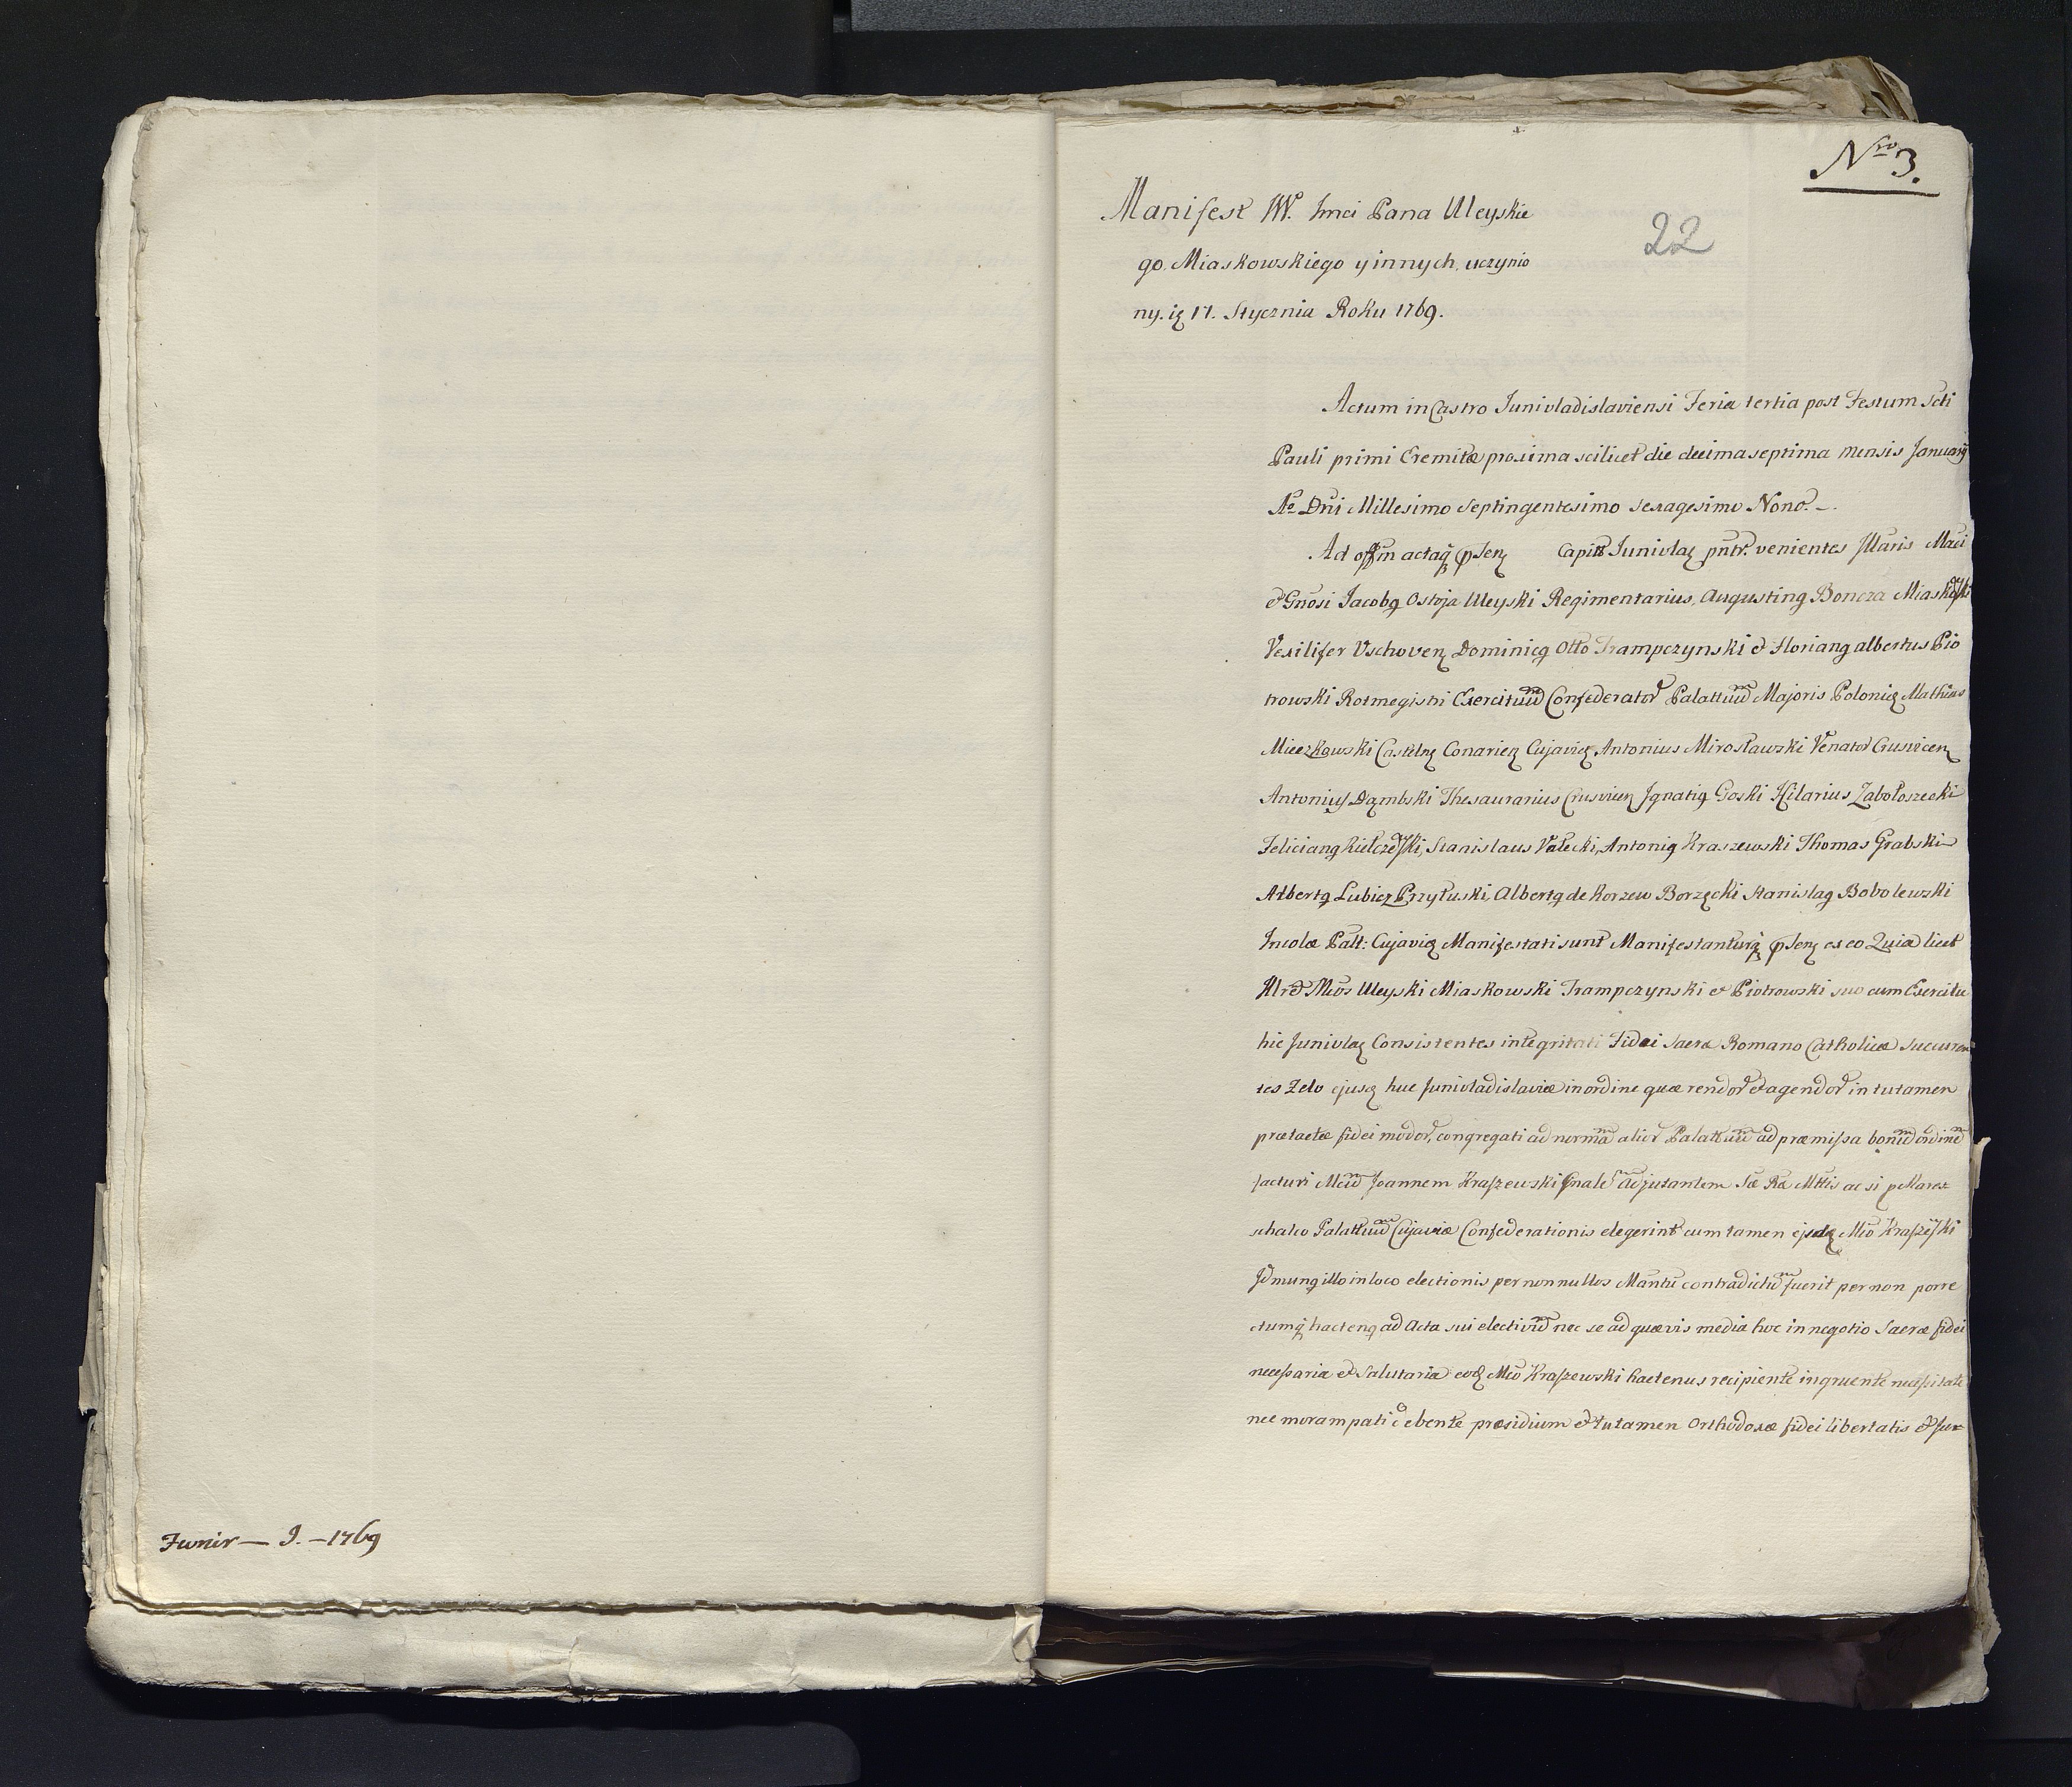 Junivr — J. — 1769
Nro 3.
22
Manifest W. Jmci Pana Uleyskie
go. Miaskowskiego y innych, uczynio
ny. ię 17. Stycznia Roku 1769.
Actum in Castro Junivladislaviensi Feria tertia post Festum Scti
Pauli primi Eremitæ proxima scilicet die decima septima mensis Januarij
Ao Dni Millesimo Septingentesimo sexagesimo Nono. —.
Ad offm actaq pSen Capit Junivla pntr. venientes Illris Mfci
et Gnosi Jacobq Ostoja Uleyski Regimentarius, Augustinq Boncza Miaskowski
Vexilifer Vschoven Dominicq Otto Trampczynski et Florianq albertus Pio
trowski Rotmegistri Exercituum Confederator Palattuum Majoris Polonię Mathias
Mieczkowski Castlnę Conarien Cujavię Antonius Mirosławski Venator Crusvicen
Antonius Dąmbski Thesaurarius Crusvicen Jgnatiq Goski Hilarius Zabołoszecki
Felicianq Kiełczewski, Stanislaus Vałecki, Antoniq Kraszewski Thomas Grabski
Albertq Lubicz Przyłuski, Albertq de Korzew Borzęcki Stanislaq Bobolewski
Incolæ Palt: Cujavię Manifestati sunt Manifestanturq pSen ex eo Quia licet
Jllr et Mcos Uleyski Miaskowski Trampczynski et Piotrowski suo cum Exercitu
hic Junivlaę Consistentes integritati Fidei Sacræ Romano Catholicæ succuren
tes Zelo ejusq huc Junivladislaviæ in ordine quærendor et agendor in tutamen
prætactæ fidei modor, congregati ad normam alior Palattuum ad præmissa bonum ordinem
facturi Mcum Joannem Kraszewski Gnalem adjutantem Sæ Ræ Mttis ac si p Mares
schalco Palattuum Cujaviæ Confederationis elegerint cum tamen ejsdę Mco Kraszewski
Jd munq illo in loco electionis per nonnullos Mantu contradictum fuerit per non porre
ctumq hactenq ad Acta sui electivum nec se ad quævis media hoc in negotio Sacræ fidei
necessaria et Salutaria eodę Mco Kraszewski hactenus recipiente ingruente necessitate
nec moram pati debente præsidium et tutamen Orthodoxæ fidei libertatis et Jur